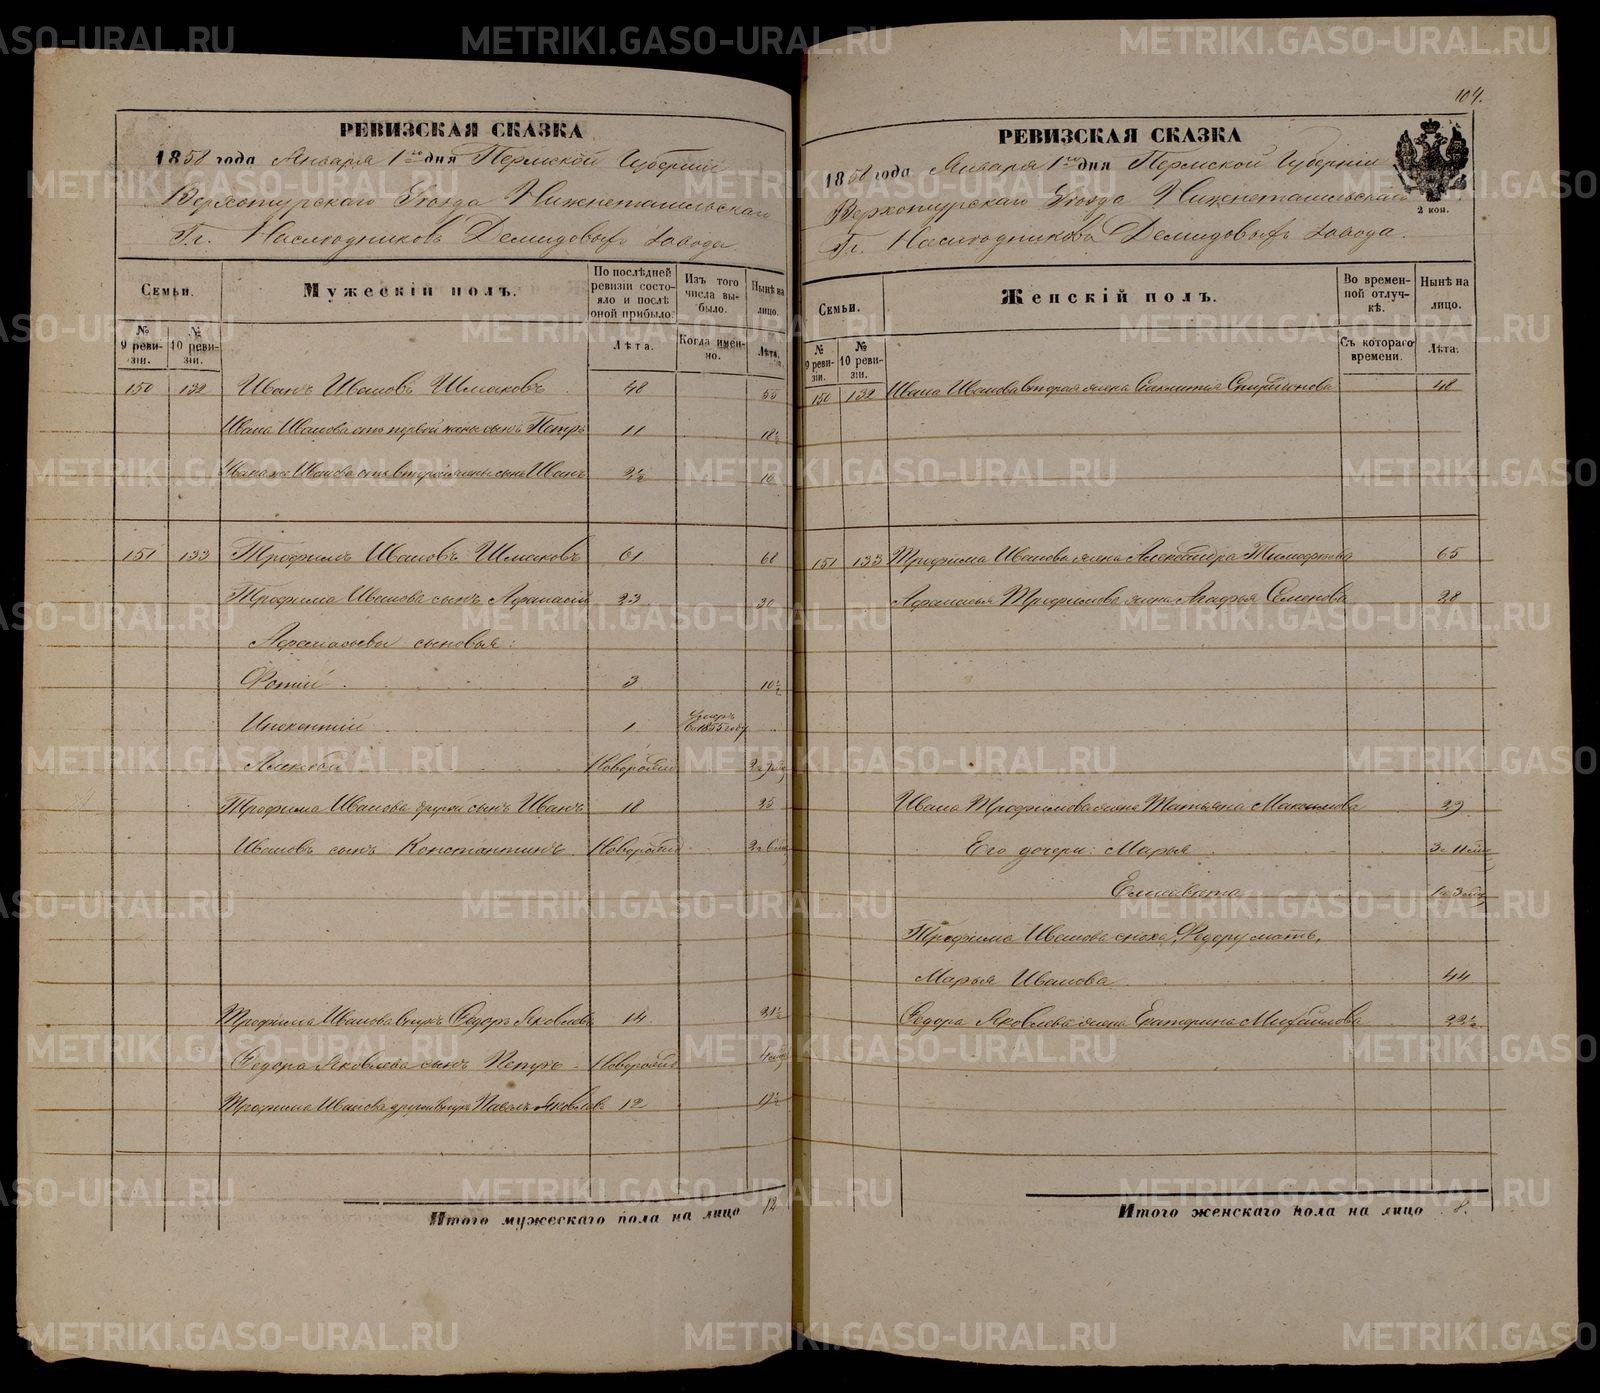 РЕВИЗСКАЯ СКАЗКА
1858 года Января 1го дня Пермской Губерніи
Верхотурскаго Уѣзда Нижнетагильскаго
Гг. Наслѣдниковъ Демидовыхъ Завода
Семьи.
Мужескій полъ.
По послѣдней ревизіи состояло и послѣ оной прибыло.
Изъ того числа выбыло.
Нынѣ на лицо.
№ 9 ревизіи.
№ 10 ревизіи.
Лѣта.
Когда именно.
Лѣта.
150 132 Иванъ Ивановъ Шмаковъ 48 55
Ивана Иванова отъ первой жены сынъ Петръ 11 18½
Ивана же Иванова отъ второй жены сынъ Иванъ 2½ 10
151 133 Трофимъ Ивановъ Шмаковъ 61 68
Трофима Иванова сынъ Афанасій 23 30
Афанасьевы сыновья:
Фотій 3 10½
Инокентій 1 умеръ въ 1855 году
Алексѣй Новорожд
Трофима Иванова другой сынъ Иванъ 18 25
Ивановъ сынъ Константинъ Новорожд
Трофима Иванова внукъ Федоръ Яковлевъ 14 21½
Федора Яковлева сынъ Петръ Новорожд
Трофима Иванова другой внукъ Павелъ Яковлевъ 12 19½
Итого мужескаго пола на лицо 12
104.
РЕВИЗСКАЯ СКАЗКА
1858 года Января 1го дня Пермской Губерніи
Верхотурскаго Уѣзда Нижнетагильскаго
Гг. Наслѣдниковъ Демидовыхъ Завода.
2 коп.
Семьи.
Женскій полъ.
Во временной отлучкѣ.
Нынѣ на лицо.
№ 9 ревизіи.
№ 10 ревизіи.
Съ котораго времени.
Лѣта.
150 132 Ивана Иванова вторая жена Спиридонова 48
151 133 Трофима Иванова жена Александра Тимофеева 65
Афанасья Трофимова жена Агафья Семенова 28
Ивана Трофимова жена Татьяна Максимова 29
Его дочери: Марья
Елисавета
Трофима Иванова сноха, Федору мать,
Марья Иванова 44
Федора Яковлева жена Екатерина Михайлова 22½
Итого женскаго пола на лицо 8.
METRIKI.GASO-URAL.RU